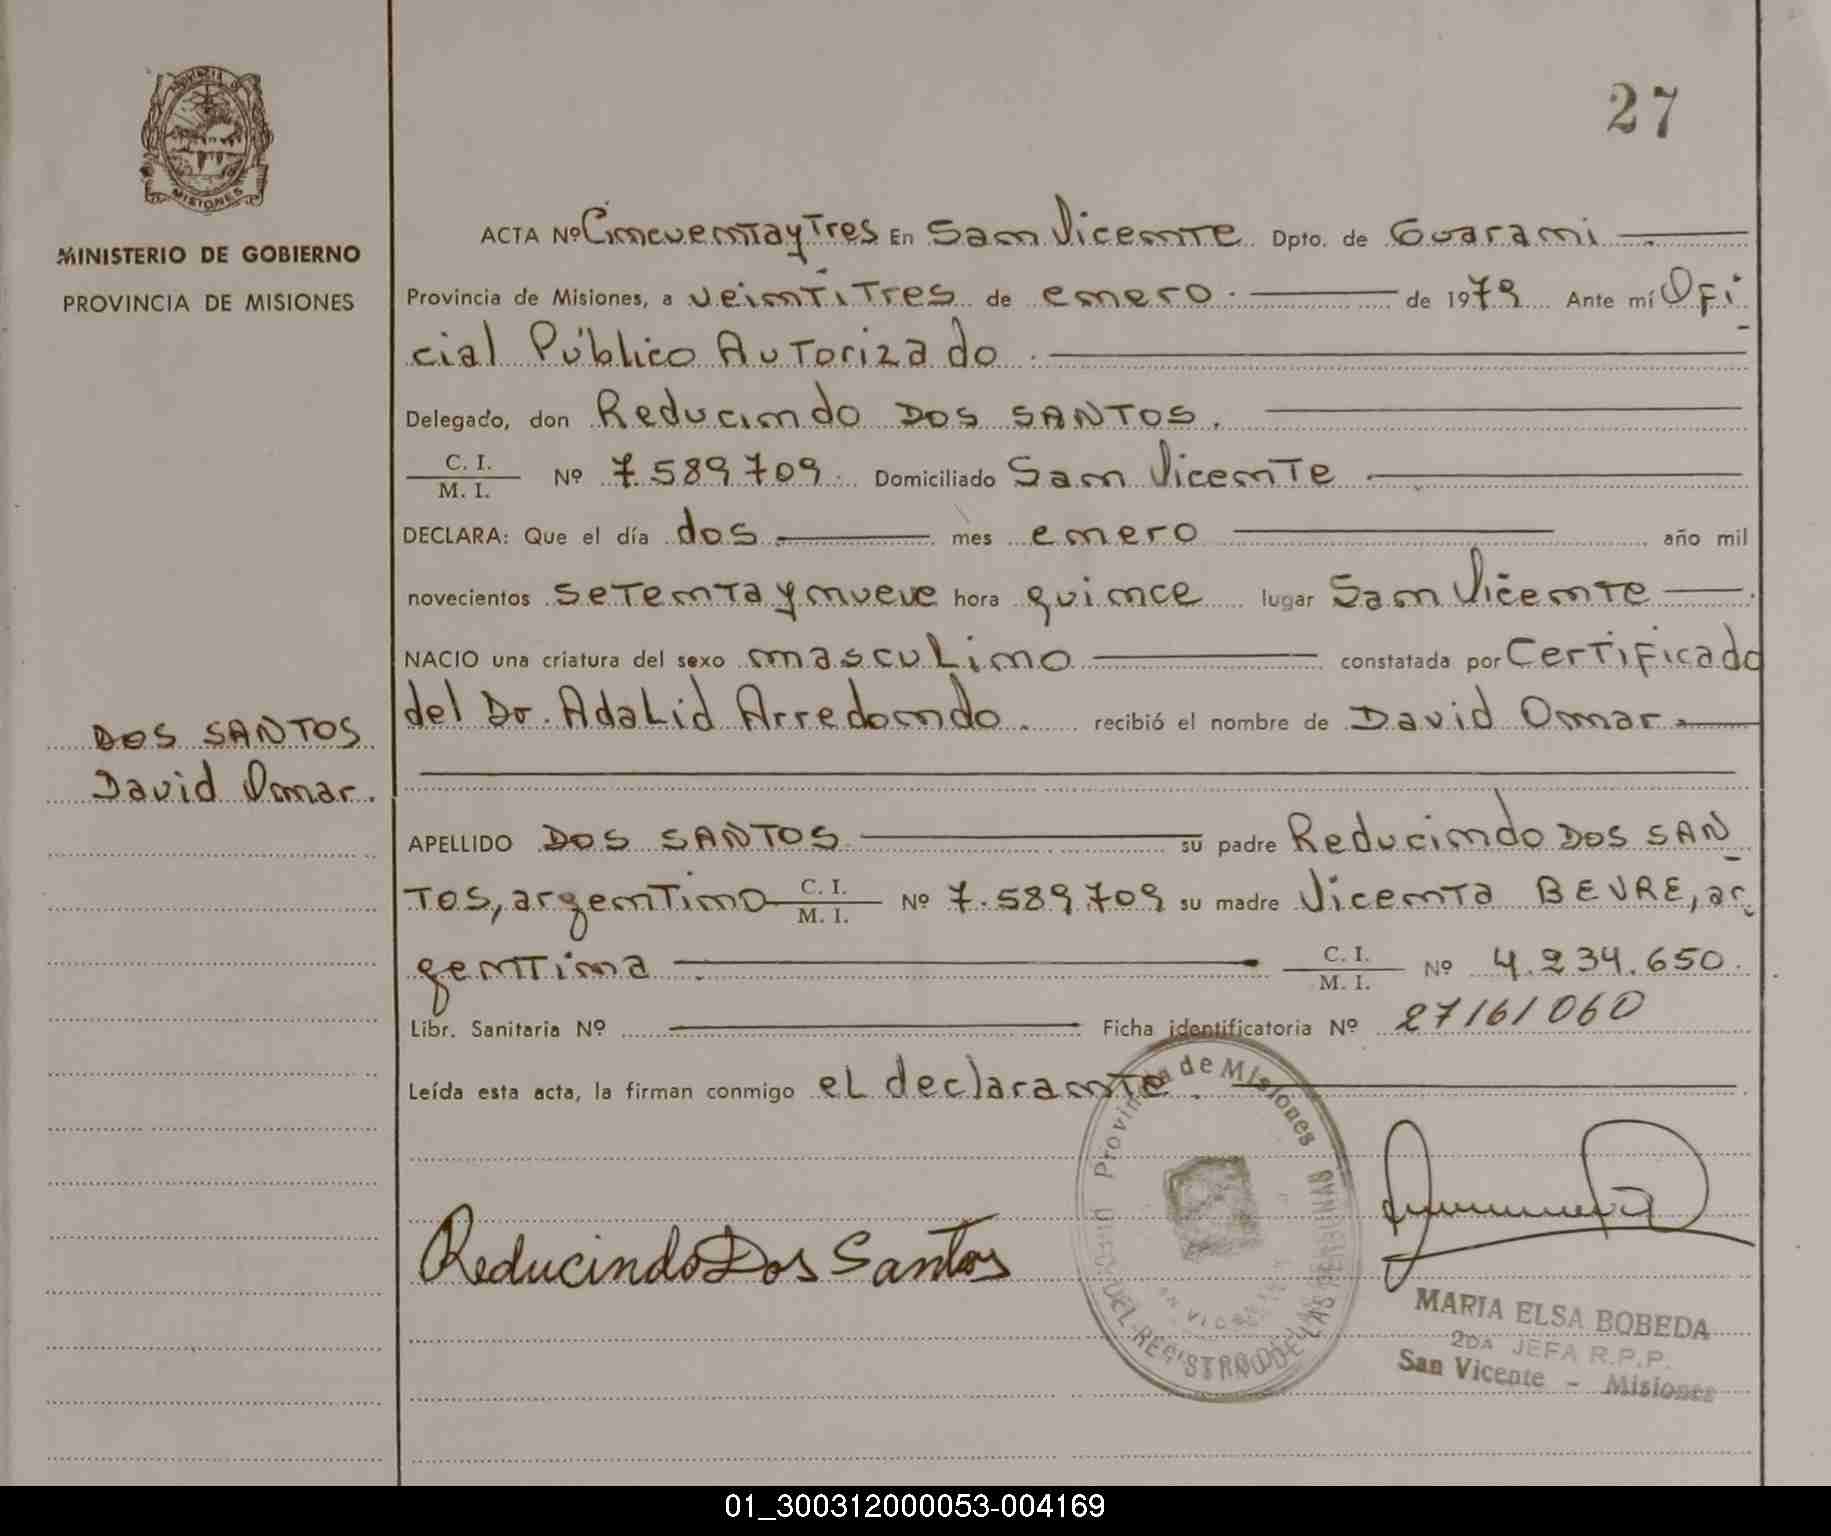 27
PROVINCIA DE
MISIONES
MINISTERIO DE GOBIERNO
PROVINCIA DE MISIONES
ACTA Nº Cincuenta y Tres En San Vicente Dpto. de Guarani
Provincia de Misiones, a veintitres de enero de 1979 Ante mí Ofi
cial Público Autorizado
Delegado, don Reducindo DOS SANTOS.
C. I.
M. I. Nº 7.589.709 Domiciliado San Vicente
DECLARA: Que el día dos mes enero año mil
novecientos setenta y nueve hora quince lugar San Vicente
NACIO una criatura del sexo masculino constatada por Certificado
del Dr. Adalid Arredondo. recibió el nombre de David Omar
DOS SANTOS
David Omar.
APELLIDO DOS SANTOS su padre Reducindo DOS SAN
TOS, argentino C. I. M. I. Nº 7.589.709 su madre Vicenta BEVRE, ar
gentina C. I. M. I. Nº 4.234.650.
Libr. Sanitaria Nº Ficha identificatoria Nº 27161060
Leída esta acta, la firman conmigo el declarante.
Provincia de Misiones
DEL REGISTRO DE LAS PERSONAS
Reducindo Dos Santos
MARIA ELSA BOBEDA
2DA JEFA R.P.P.
San Vicente - Misiones
01_300312000053-004169